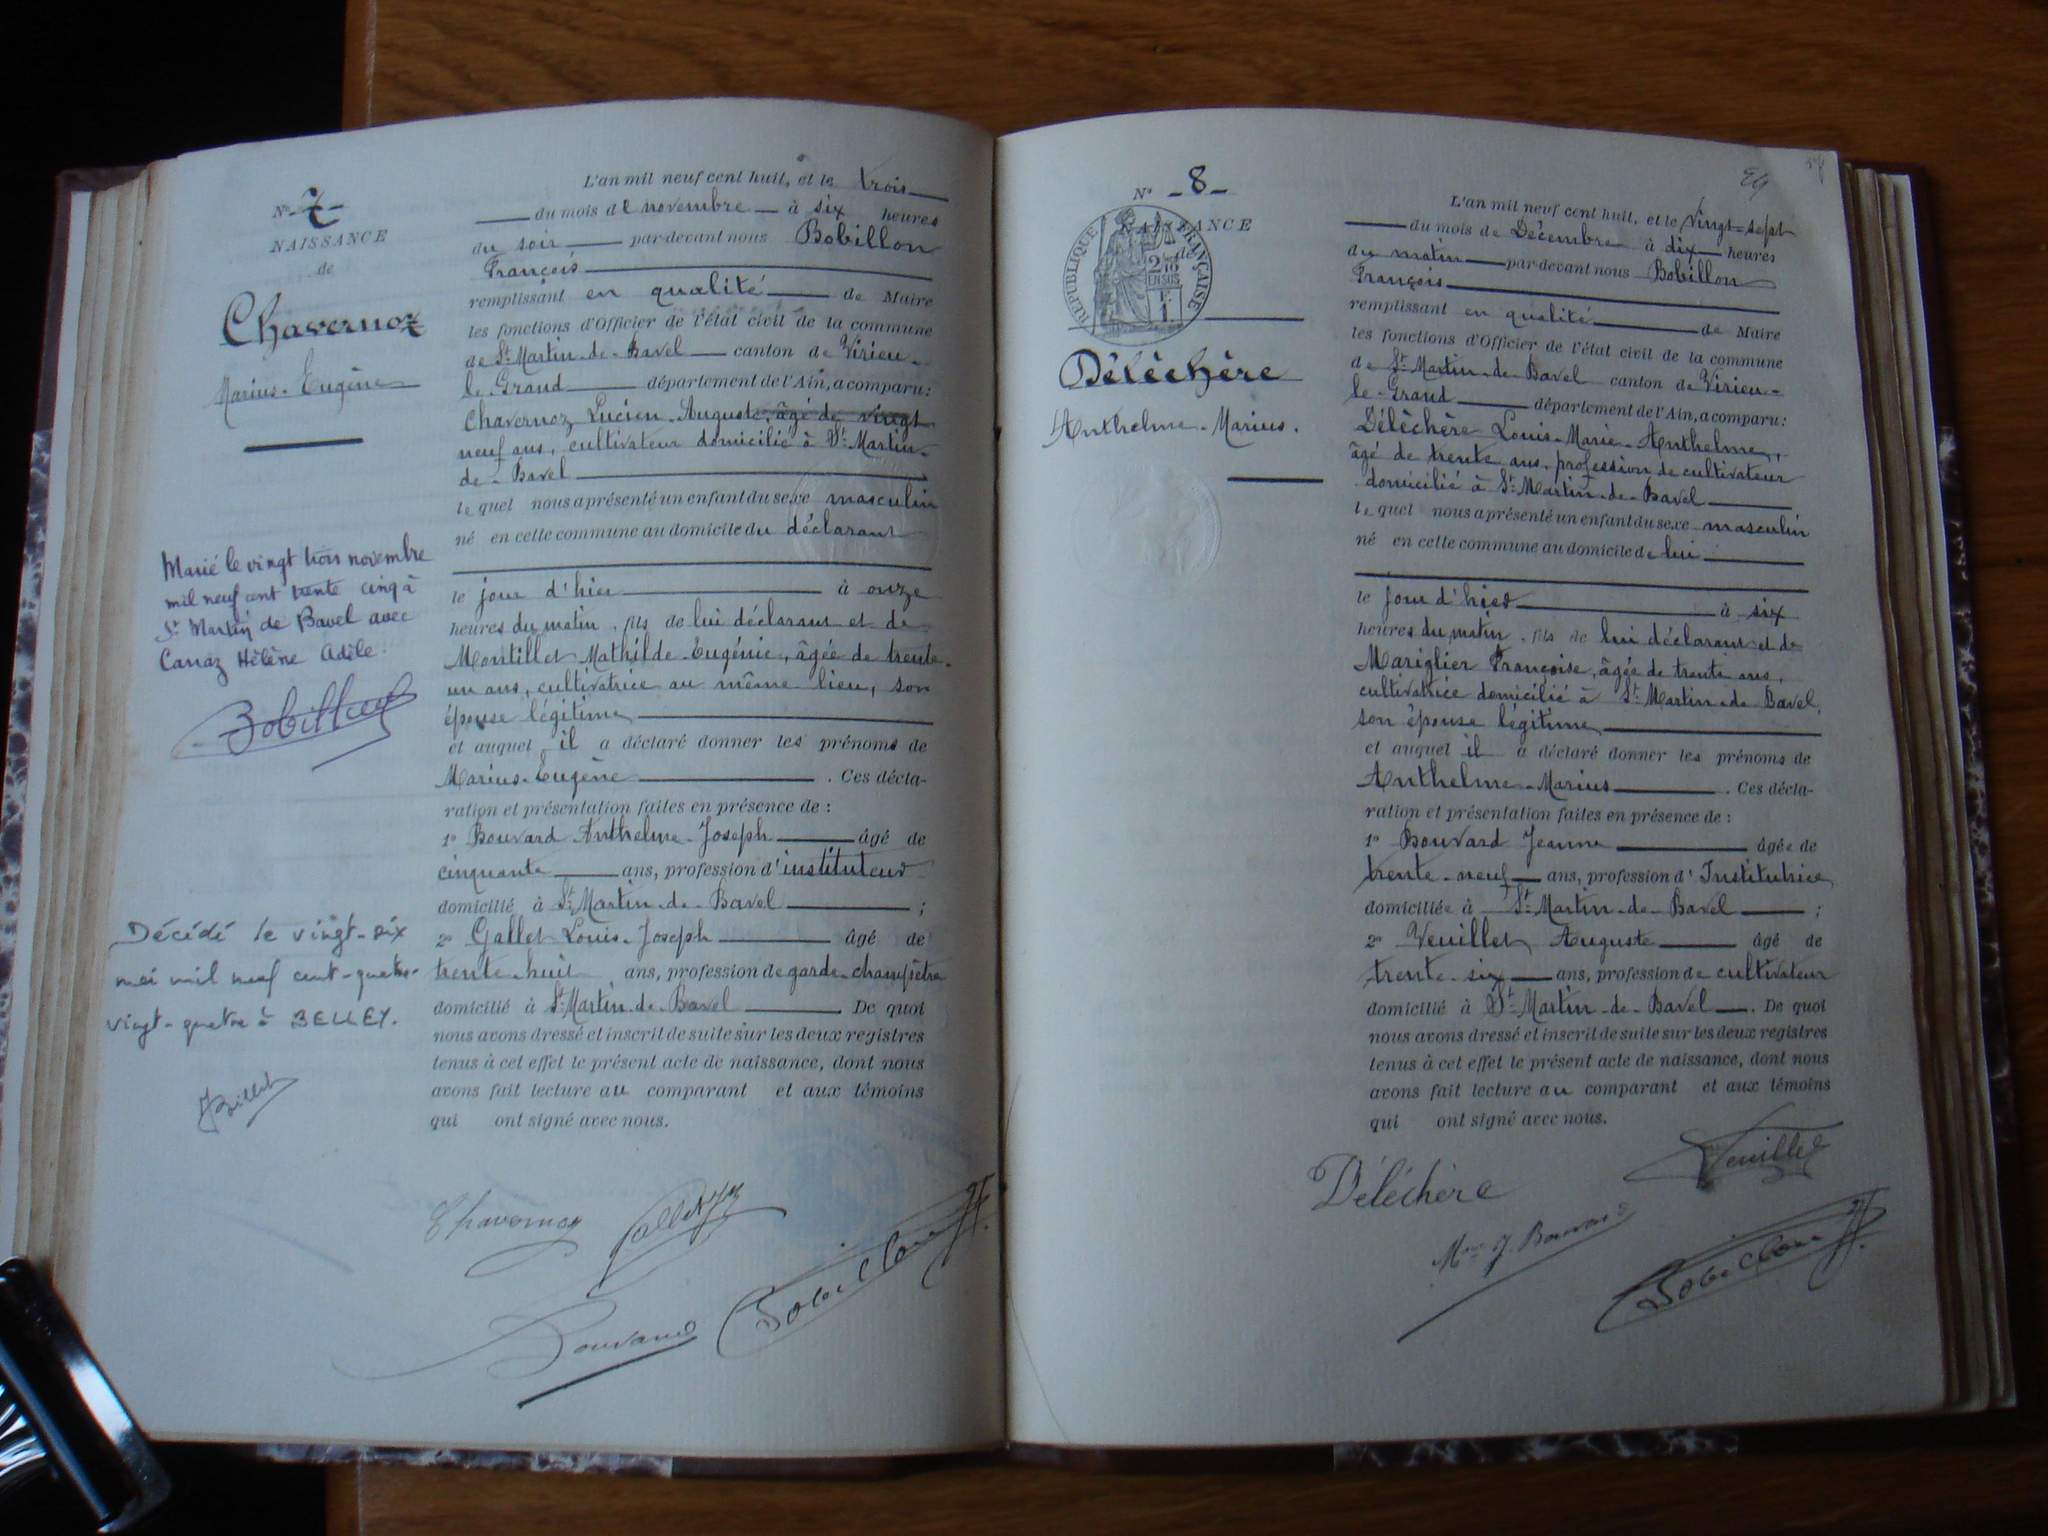 N° -7-
NAISSANCE
de
Chavernoz
Marius-Eugène
Marié le vingt trois novembre
mil neuf cent trente cinq à
St Martin de Bavel avec
Carraz Hélène Adèle.
Bobillon
Décédé le vingt-six
mai mil neuf cent-quatre-
vingt-quatre à BELLEY.
L'an mil neuf cent huit, et le trois
du mois de novembre à six heures
du soir par-devant nous Bobillon
François
remplissant en qualité de Maire
les fonctions d'Officier de l'état civil de la commune
de St Martin-de-Bavel canton de Virieu-
le-Grand département de l'Ain, a comparu:
Chavernoz Lucien-Auguste, âgé de vingt
neuf ans, cultivateur domicilié à St Martin-
de-Bavel
le quel nous a présenté un enfant du sexe masculin
né en cette commune au domicile du déclarant
le jour d'hier à onze
heures du matin, fils de lui déclarant et de
Montillet Mathilde-Eugénie, âgée de trente-
un ans, cultivatrice au même lieu, son
épouse légitime
et auquel il a déclaré donner les prénoms de
Marius-Eugène. Ces décla-
ration et présentation faites en présence de :
1° Bouvard Anthelme-Joseph âgé de
cinquante ans, profession d'instituteur
domicilié à St Martin-de-Bavel ;
2° Gallet Louis-Joseph âgé de
trente-huit ans, profession de garde-champêtre
domicilié à St Martin-de-Bavel De quoi
nous avons dressé et inscrit de suite sur les deux registres
tenus à cet effet le présent acte de naissance, dont nous
avons fait lecture au comparant et aux témoins
qui ont signé avec nous.
Chavernoz
Gallet
Bouvard
Bobillon
N° -8-
NAISSANCE
de
RÉPUBLIQUE FRANÇAISE
2/10
EN SUS
1 F.
Déléchère
Anthelme-Marius.
L'an mil neuf cent huit, et le vingt-sept
du mois de Décembre à dix heures
du matin par-devant nous Bobillon
François
remplissant en qualité de Maire
les fonctions d'Officier de l'état civil de la commune
de St Martin-de-Bavel canton de Virieu-
le-Grand département de l'Ain, a comparu:
Déléchère Louis-Marie-Anthelme,
âgé de trente ans, profession de cultivateur
domicilié à St Martin-de-Bavel
le quel nous a présenté un enfant du sexe masculin
né en cette commune au domicile de lui
le jour d'hier à six
heures du matin, fils de lui déclarant et de
Mariglier Françoise, âgée de trente ans,
cultivatrice domicilié à St Martin-de-Bavel,
son épouse légitime
et auquel il a déclaré donner les prénoms de
Anthelme-Marius. Ces décla-
ration et présentation faites en présence de :
1° Bouvard Jeanne âgée de
trente-neuf ans, profession d'Institutrice
domiciliée à St Martin-de-Bavel ;
2° Veuillet Auguste âgé de
trente-six ans, profession de cultivateur
domicilié à St Martin-de-Bavel. De quoi
nous avons dressé et inscrit de suite sur les deux registres
tenus à cet effet le présent acte de naissance, dont nous
avons fait lecture au comparant et aux témoins
qui ont signé avec nous.
Déléchère
Veuillet
Mme J. Bouvard
Bobillon